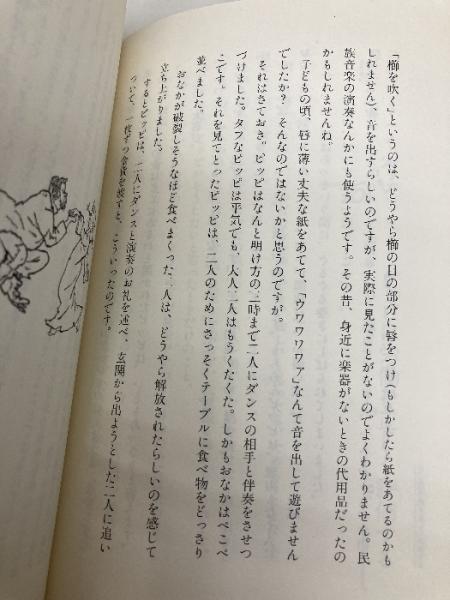 「櫛を吹く」というのは、どうやら櫛の目の部分に唇をつけ(もしかしたら紙をあてるのかも
しれません)、音を出すらしいのですが、実際に見たことがないのでよくわかりません。民
族音楽の演奏なんかにも使うようです。その昔、身近に楽器がないときの代用品だったの
かもしれませんね。
子どもの頃、唇に薄い丈夫な紙をあてて、「ウワワワワァ」なんて音を出して遊びません
でしたか? そんなのではないかと思うのですが。
それはさておき。ピッピはなんと明け方の三時まで二人にダンスの相手と伴奏をさせつ
づけました。タフなピッピは平気でも、大人二人はもうくたくた。しかもおなかはぺこぺ
こです。それを見てとったピッピは、二人のためにさっそくテーブルに食べ物をどっさり
並べました。
おなかが破裂しそうなほど食べまくった二人は、どうやら解放されたらしいのを感じて
立ち上がりました。
するとピッピは、二人にダンスと演奏のお礼を述べ、玄関から出ようとした二人に追い
ついて、一枚ずつ金貨を渡すと、こういったのです。